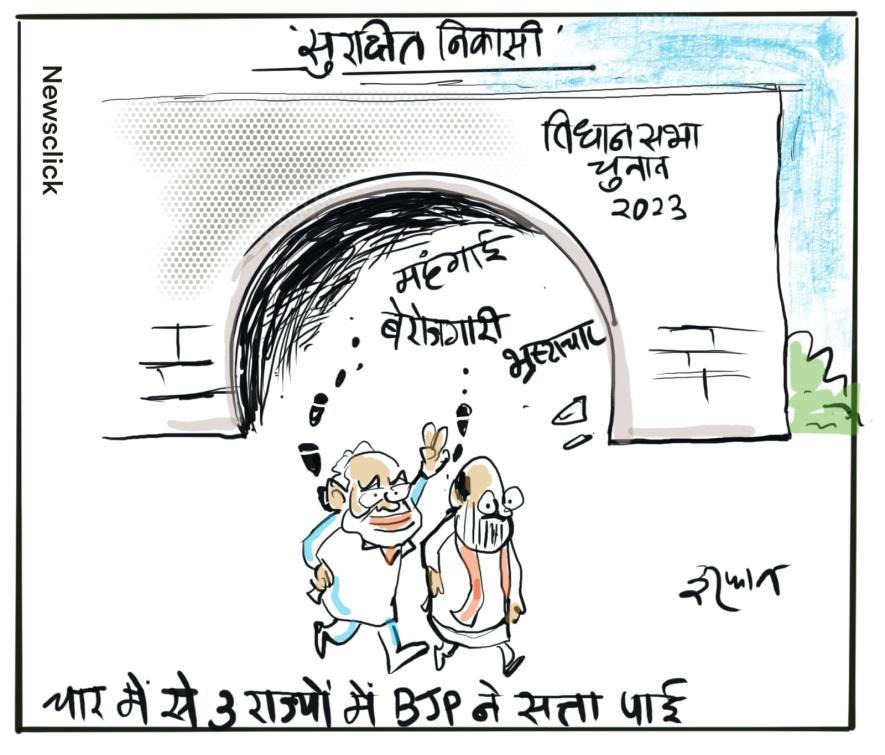 'सुरक्षित निकासी'
Newsclick
विधानसभा
चुनाव
2023
महंगाई
बेरोजगारी
भ्रष्टाचार
इरफान
चार में से 3 राज्यों में BJP ने सत्ता पाई